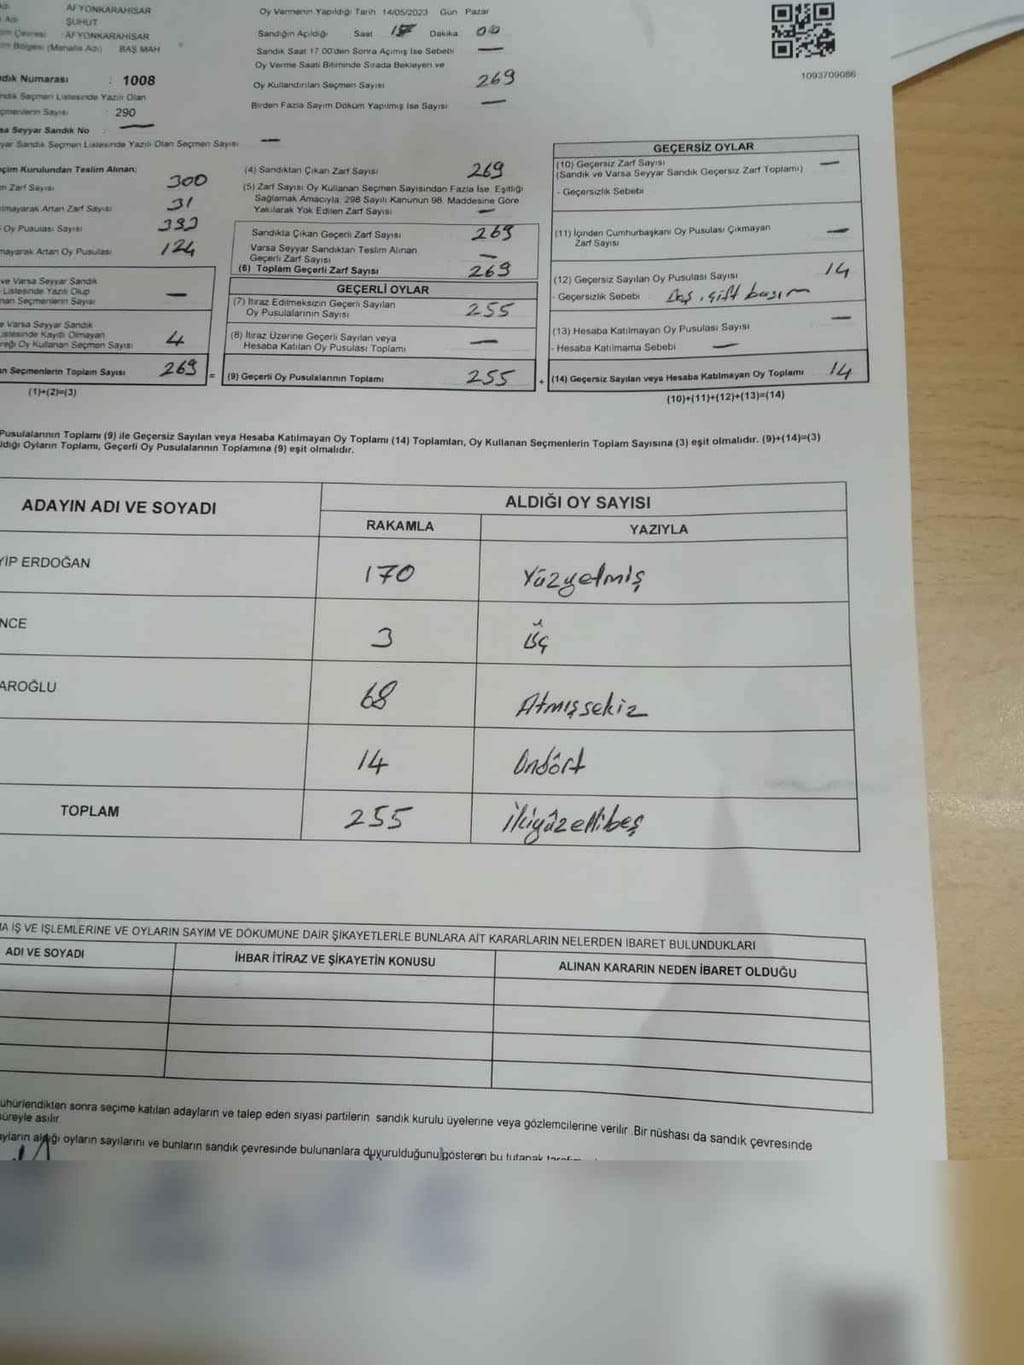 AFYONKARAHİSAR
Adı ŞUHUT
Çevresi AFYONKARAHİSAR
Bölgesi (Mahalle Adı) BAŞ MAH
Numarası : 1008
Seçmen Listesinde Yazılı Olan
Sayısı 290
Seyyar Sandık No —
Sandık Seçmen Listesinde Yazılı Olan Seçmen Sayısı —
Oy Vermenin Yapıldığı Tarih 14/05/2023 Gün Pazar
Sandığın Açıldığı Saat Dakika 00
Sandık Saat 17.00'den Sonra Açılmış İse Sebebi —
Oy Verme Saati Bitiminde Sırada Bekleyen ve
Oy Kullandırılan Seçmen Sayısı 269
Birden Fazla Sayım Döküm Yapılmış İse Sayısı —
1093709086
Kurulundan Teslim Alınan:
Zarf Sayısı 300
Artan Zarf Sayısı 31
Oy Pusulası Sayısı
Artan Oy Pusulası 124
ve Varsa Seyyar Sandık
Listesinde Yazılı Olup
Seçmenlerin Sayısı —
Varsa Seyyar Sandık
Kayıtlı Olmayan
Oy Kullanan Seçmen Sayısı 4
Seçmenlerin Toplam Sayısı 269
(1)+(2)=(3)
(4) Sandıktan Çıkan Zarf Sayısı 269
(5) Zarf Sayısı Oy Kullanan Seçmen Sayısından Fazla İse, Eşitliği
Sağlamak Amacıyla, 298 Sayılı Kanunun 98. Maddesine Göre
Yakılarak Yok Edilen Zarf Sayısı —
Sandıkta Çıkan Geçerli Zarf Sayısı 269
Varsa Seyyar Sandıktan Teslim Alınan
Geçerli Zarf Sayısı —
(6) Toplam Geçerli Zarf Sayısı 269
GEÇERLİ OYLAR
(7) İtiraz Edilmeksizin Geçerli Sayılan
Oy Pusulalarının Sayısı 255
(8) İtiraz Üzerine Geçerli Sayılan veya
Hesaba Katılan Oy Pusulası Toplamı —
= (9) Geçerli Oy Pusulalarının Toplamı 255 +
GEÇERSİZ OYLAR
(10) Geçersiz Zarf Sayısı —
(Sandık ve Varsa Seyyar Sandık Geçersiz Zarf Toplamı)
- Geçersizlik Sebebi
(11) İçinden Cumhurbaşkanı Oy Pusulası Çıkmayan
Zarf Sayısı —
(12) Geçersiz Sayılan Oy Pusulası Sayısı 14
- Geçersizlik Sebebi Boş, çift basım
(13) Hesaba Katılmayan Oy Pusulası Sayısı —
- Hesaba Katılmama Sebebi —
(14) Geçersiz Sayılan veya Hesaba Katılmayan Oy Toplamı 14
(10)+(11)+(12)+(13)=(14)
Pusulalarının Toplamı (9) ile Geçersiz Sayılan veya Hesaba Katılmayan Oy Toplamı (14) Toplamları, Oy Kullanan Seçmenlerin Toplam Sayısına (3) eşit olmalıdır. (9)+(14)=(3)
Oyların Toplamı, Geçerli Oy Pusulalarının Toplamına (9) eşit olmalıdır.
ADAYIN ADI VE SOYADI
ALDIĞI OY SAYISI
RAKAMLA YAZIYLA
YİP ERDOĞAN 170 Yüzyetmiş
NCE 3 Üç
AROĞLU 68 Atmışsekiz
14 Ondört
TOPLAM 255 İkiyüzellibeş
İŞ VE İŞLEMLERİNE VE OYLARIN SAYIM VE DÖKÜMÜNE DAİR ŞİKAYETLERLE BUNLARA AİT KARARLARIN NELERDEN İBARET BULUNDUKLARI
ADI VE SOYADI İHBAR İTİRAZ VE ŞİKAYETİN KONUSU ALINAN KARARIN NEDEN İBARET OLDUĞU
ühürlendikten sonra seçime katılan adayların ve talep eden siyasi partilerin sandık kurulu üyelerine veya gözlemcilerine verilir. Bir nüshası da sandık çevresinde
süreyle asılır
ayların aldığı oyların sayılarını ve bunların sandık çevresinde bulunanlara duyurulduğunu gösteren bu tutanak